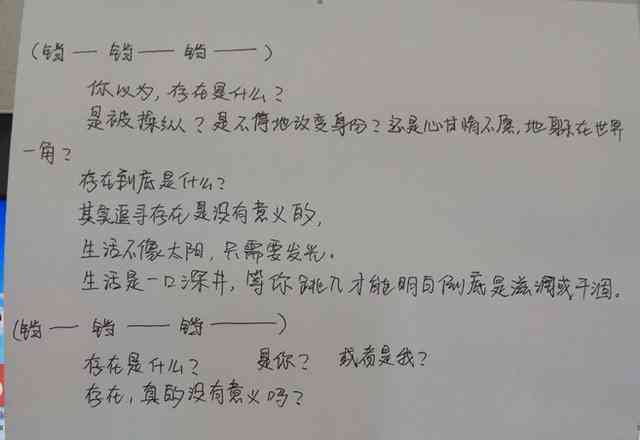 (铛— 铛—— 铛——)
你以为,存在是什么?
是被操纵人?是不停地改变身份?还是心甘情不愿,地躲在世界
一角?
存在到底是什么?
其实追寻存在是没有意义的,
生活不像太阳,只需要发光。
生活是一口深井,等你跳入才能明白倒底是滋润或干涸。
(铛— 铛—— 铛———)
存在是什么? 是你? 或者是我?
存在,真的没有意义吗?